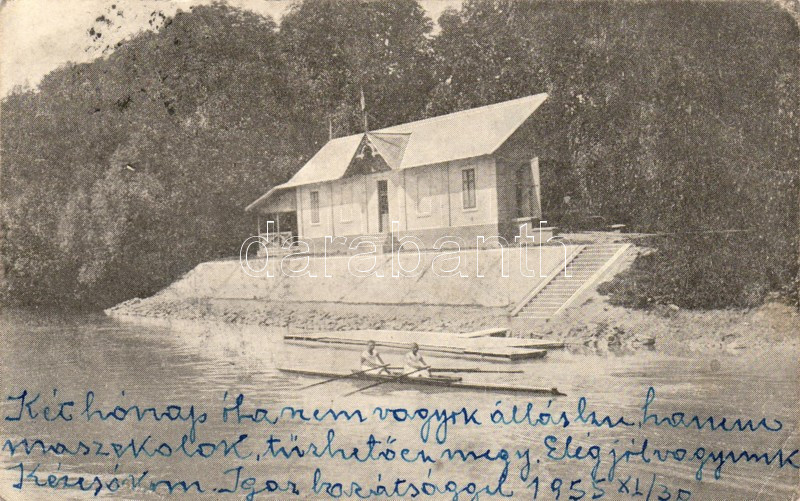 darabanth
Két hónap óta nem vagyok állásban, hanem
maszekolok, tűzhetően megy. Elég jól vagyunk
Kézcsókom. Igaz barátsággal 1955 XI/30